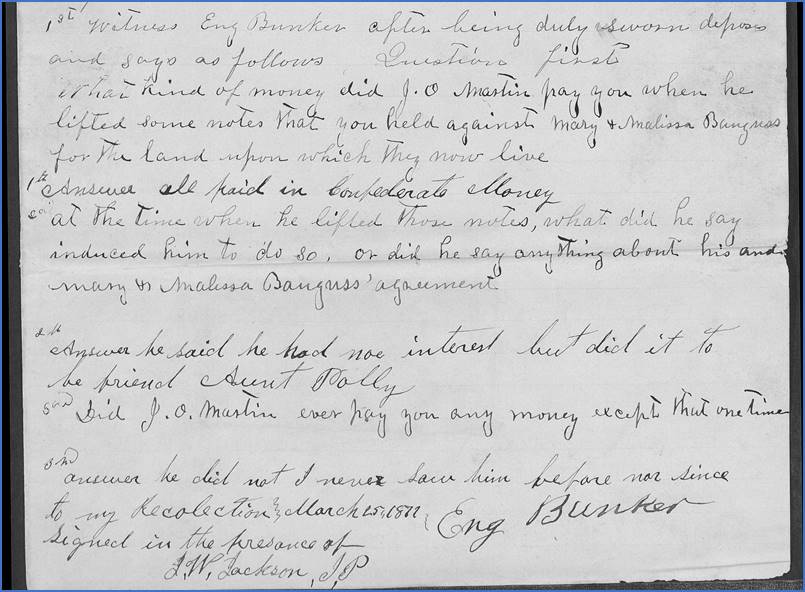 1st Witness Eng Bunker after being duly sworn deposes
and says as follows Question first
What kind of money did J. O Martin pay you when he
lifted some notes that you held against Mary & Malissa Bauguss
for the land upon which they now live
1st Answer all paid in Confederate Money
2nd at the time when he lifted those notes, what did he say
induced him to do so, or did he say anything about his and
Mary & Malissa Bauguss' agreement
2th Answer he said he had noe interest but did it to
be friend Aunt Polly
3rd Did J. O. Martin ever pay you any money except that one time
3rd answer he did not I never saw him before nor since
to my Recolection March 25, 1872
Eng Bunker
Signed in the presance of
J. W. Jackson, J, P